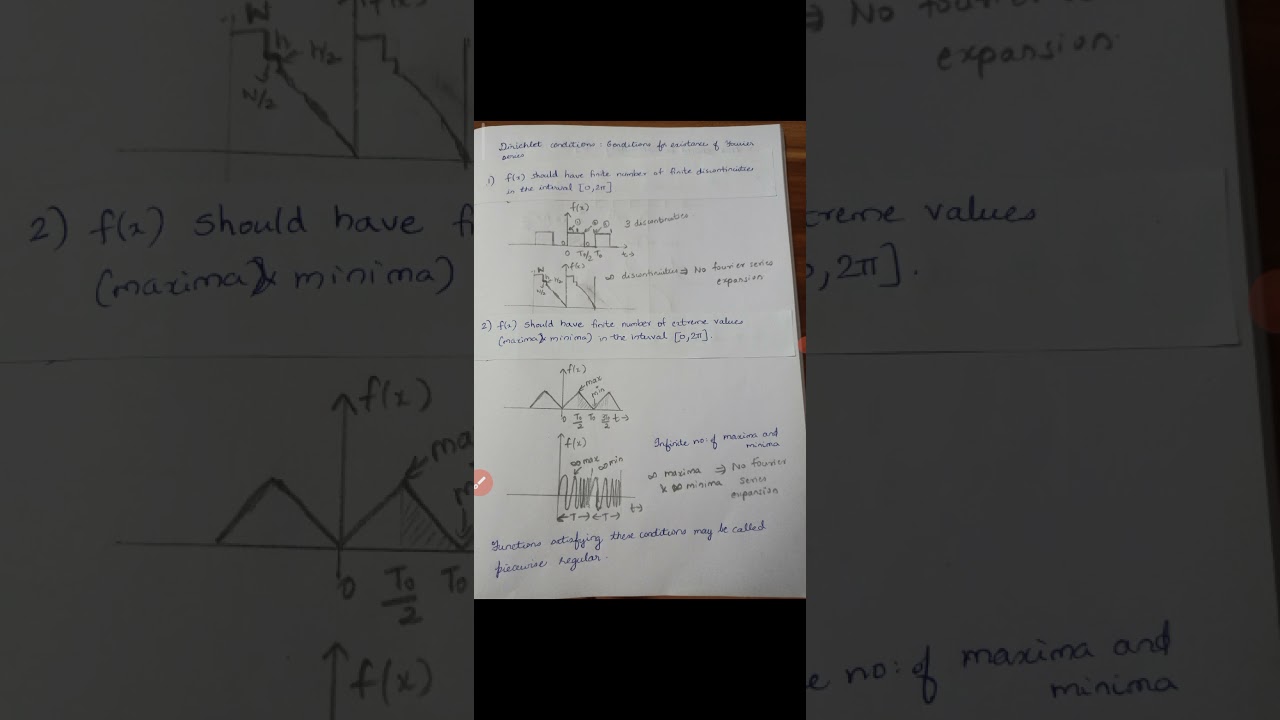 Dirichlet conditions: Conditions for existance of Fourier
series
1) f(x) should have finite number of finite discontinuities
in the interval [0,2π]
f(x)
3 discontinuities
0 T₀/2 T₀ t→
f(x)
W
h
h/2
W/2
∞ discontinuities ⇒ No fourier series
expansion
2) f(x) should have finite number of extreme values
(maxima & minima) in the interval [0,2π].
f(x)
max
min
0 T₀/2 T₀ t→
f(x)
Infinite no: of maxima and
minima
∞ max ∞ min
∞ maxima ⇒ No fourier
& ∞ minima series
expansion
←T→←T→ t→
Functions satisfying these conditions may be called
piecewise regular.